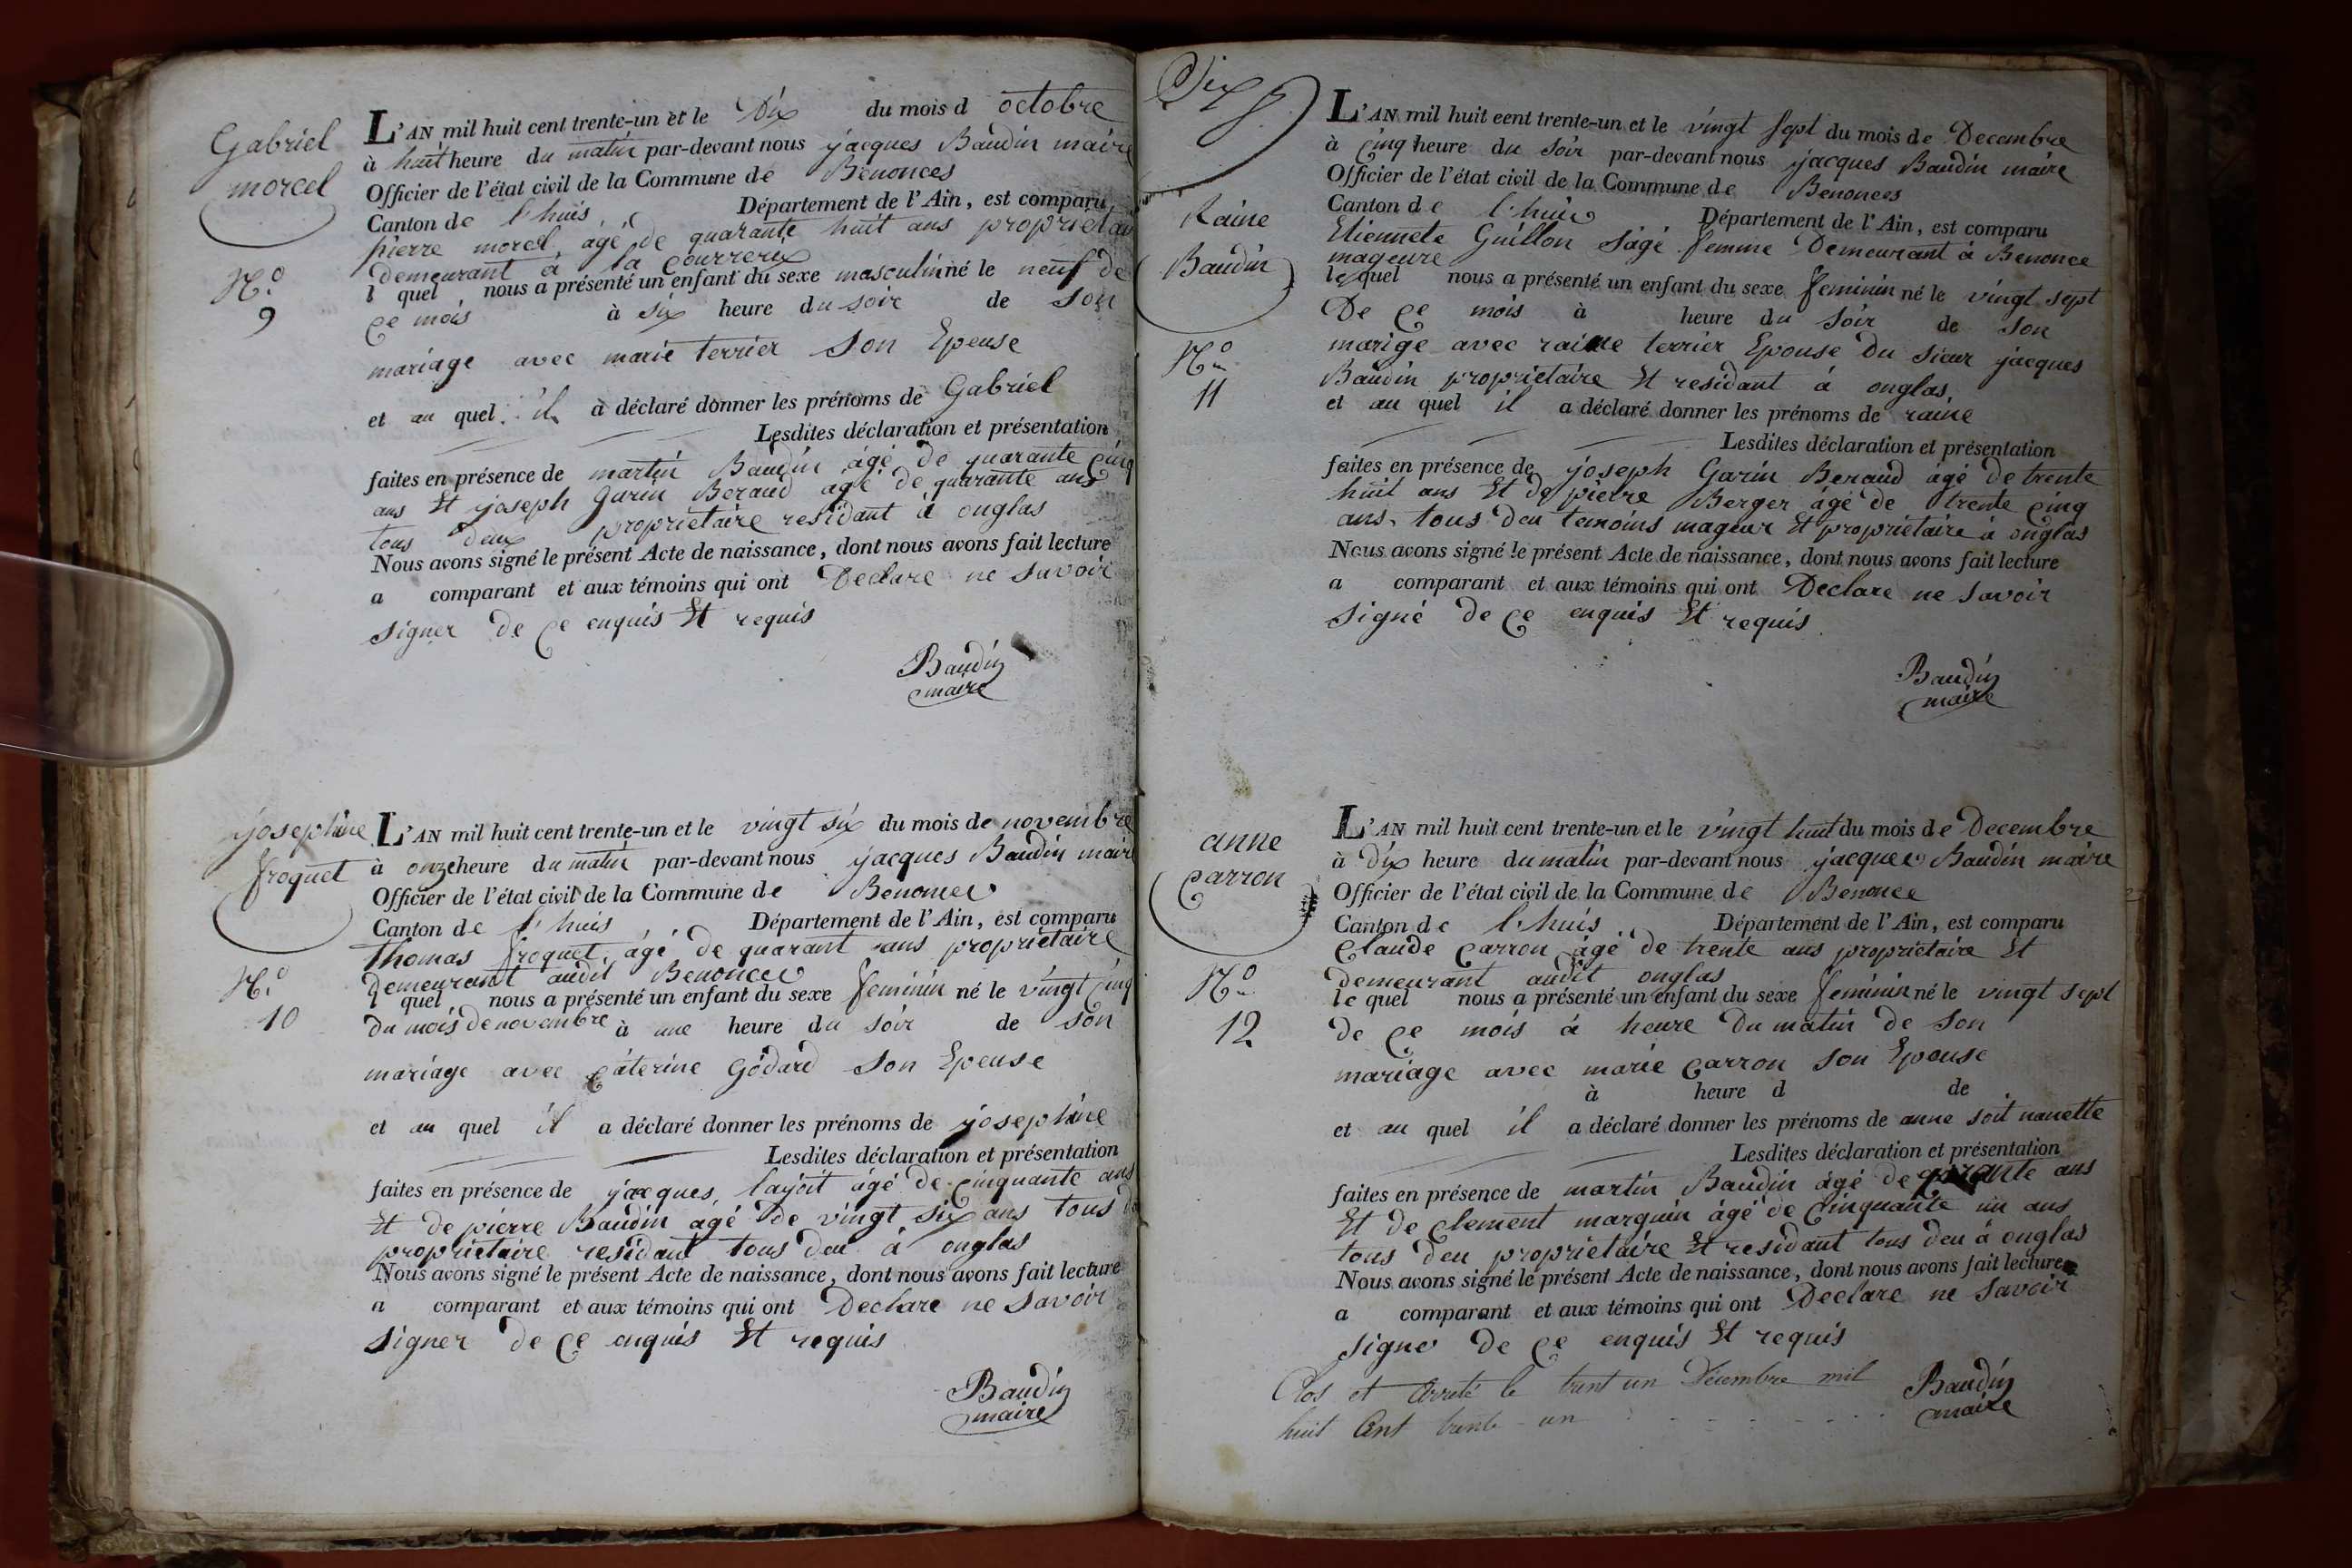 Gabriel
morcel
N.o
9
L'AN mil huit cent trente-un et le Dix du mois d octobre
à huit heure du matin par-devant nous jacques Baudin maire
Officier de l'état civil de la Commune de Benonces
Canton de l'huis Département de l'Ain, est comparu
pierre morcel, âgé de quarante huit ans propriétai
demeurant à la Courreru
l quel nous a présenté un enfant du sexe masculin né le neuf de
ce mois à six heure du soir de son
mariage avec marie terrier son Epeuse
et au quel il a déclaré donner les prénoms de Gabriel
Lesdites déclaration et présentation
faites en présence de martin Baudin âgé de quarante cinq
ans Et joseph Garin Beraud âgé de quarante ans
tous deux propriétaire residant à onglas
Nous avons signé le présent Acte de naissance, dont nous avons fait lecture
a comparant et aux témoins qui ont Declare ne savoir
signer de ce enquis Et requis
Baudin
maire
josephine
froquet
N.o
10
L'AN mil huit cent trente-un et le vingt six du mois de novembre
à onze heure du matin par-devant nous jacques Baudin maire
Officier de l'état civil de la Commune de Benonces
Canton de l'huis Département de l'Ain, est comparu
thomas froquet, âgé de quarant ans propriétaire
demeurant audit Benonces
quel nous a présenté un enfant du sexe feminin né le vingt cinq
du mois de novembre à une heure du soir de son
mariage avec caterine Godard son Epeuse
et au quel il a déclaré donner les prénoms de josephine
Lesdites déclaration et présentation
faites en présence de jacques, layoit âgé de cinquante ans
Et de pierre Baudin âgé de vingt six ans tous d
propriétaire residant tous deu à onglas
Nous avons signé le présent Acte de naissance, dont nous avons fait lecture
a comparant et aux témoins qui ont Declare ne savoir
signer de ce enquis Et requis
Baudin
maire
Raine
Baudin
N.o
11
L'AN mil huit cent trente-un et le vingt sept du mois de Decembre
à cinq heure du soir par-devant nous jacques Baudin maire
Officier de l'état civil de la Commune de Benonces
Canton de l'huis Département de l'Ain, est comparu
Etiennete Guillon sagé femme Demeurant à Benonce
mageure
le quel nous a présenté un enfant du sexe feminin né le vingt sept
De ce mois à heure du soir de son
marige avec raine terrier Epouse Du sieur jacques
Baudin propriétaire Et residant à onglas,
et au quel il a déclaré donner les prénoms de raine
Lesdites déclaration et présentation
faites en présence de joseph Garin Beraud âgé de trente
huit ans Et de pierre Berger âgé de trente cinq
ans, tous deu temoins mageur Et propriétaire à onglas
Nous avons signé le présent Acte de naissance, dont nous avons fait lecture
a comparant et aux témoins qui ont Declare ne savoir
signé de ce enquis Et requis
Baudin
maire
anne
carron
N.o
12
L'AN mil huit cent trente-un et le vingt huit du mois de Decembre
à dix heure du matin par-devant nous jacques Baudin maire
Officier de l'état civil de la Commune de Benonce
Canton de l'huis Département de l'Ain, est comparu
Claude carron âgé de trente ans propriétaire Et
demeurant audit onglas
le quel nous a présenté un enfant du sexe feminin né le vingt sept
de ce mois à heure Du matin de son
mariage avec marie carron son Epouse
à heure d de
et au quel il a déclaré donner les prénoms de anne soit nanette
Lesdites déclaration et présentation
faites en présence de martin Baudin âgé de ans
Et de clement marquin âgé de cinquante un ans
tous deu propriétaire Et residant tous deu à onglas
Nous avons signé le présent Acte de naissance, dont nous avons fait lecture
a comparant et aux témoins qui ont Declare ne savoir
signe de ce enquis Et requis
Clos et Arreté le trent un Décembre mil
huit Cent trente-un
Baudin
maire